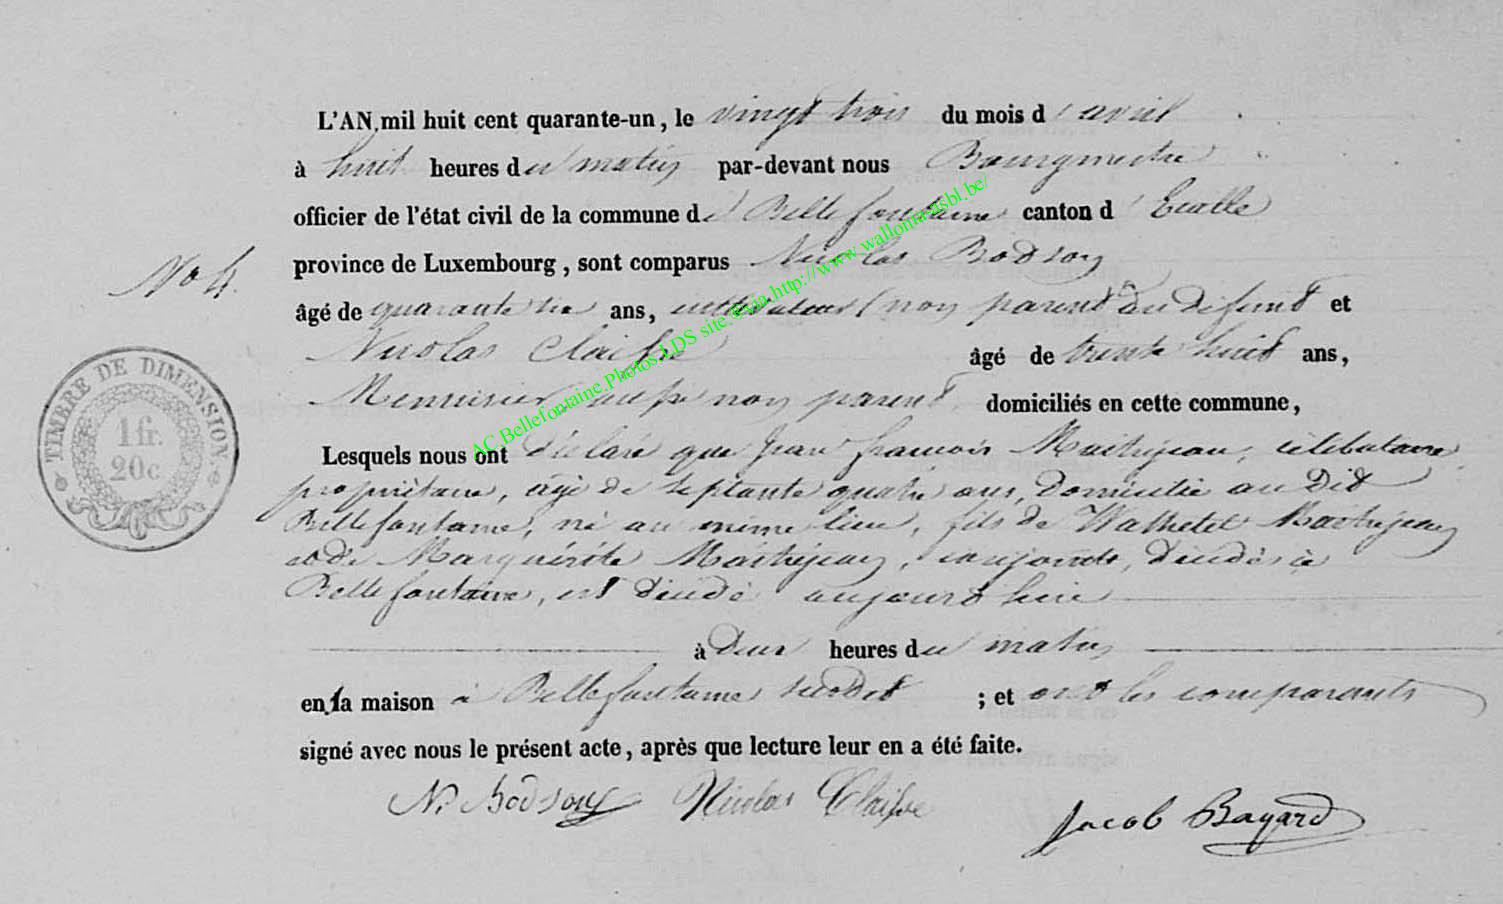 L'AN mil huit cent quarante-un, le vingt trois du mois d'avril
à huit heures du matin par-devant nous Bourgmestre
officier de l'état civil de la commune de Bellefontaine canton d'Etalle
No 4.
province de Luxembourg, sont comparus Nicolas Bodson
âgé de quarante ans, cultivateur (non parent du défunt et
Nicolas Claisse âgé de trente huit ans,
Menuisier aussi non parent domiciliés en cette commune,
Lesquels nous ont déclaré que Jean françois Maitrejean, célibataire
propriétaire, âgé de septante quatre ans, Domicilié au Dit
Bellefontaine, né au même lieu, fils de Maitrejean
et de Marguérite Maitrejean, conjoints, Décédés à
Bellefontaine, est Décédé aujourd'hui
à Deux heures du matin
en sa maison à Bellefontaine susdit ; et ont les comparants
signé avec nous le présent acte, après que lecture leur en a été faite.
N. Bodson Nicolas Claisse Jacob Bayard
TIMBRE DE DIMENSION
1 fr.
20 c
AC.Bellefontaine.Photos.LDS site.©via.http://www.wallonia-asbl.be/